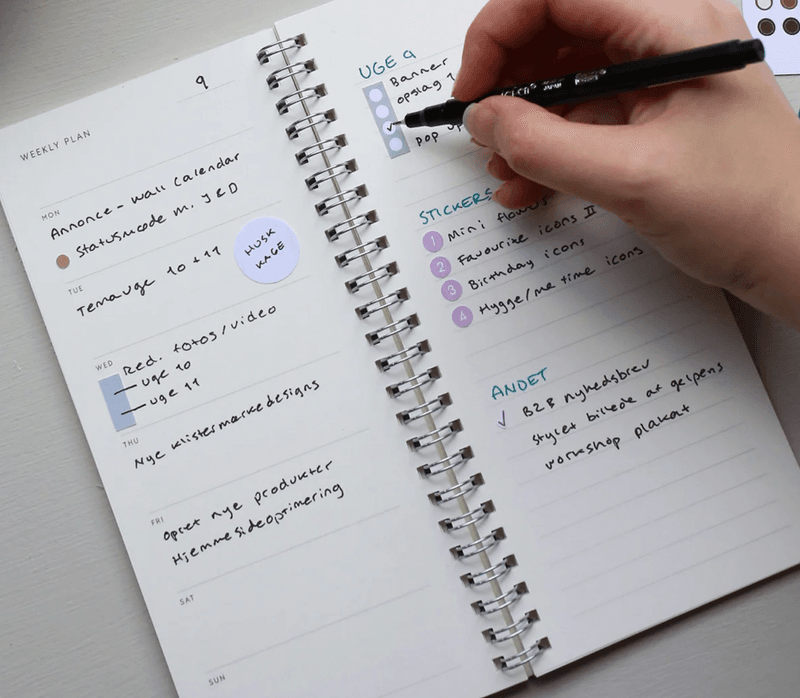 9
WEEKLY PLAN
MON
Annonce - wall calendar
Statusmøde m. J & D
TUE
Temauge 10 + 11
HUSK
KAGE
WED
Red. fotos/video
uge 10
uge 11
THU
Nye klistermærkedesigns
FRI
Opret nye produkter
Hjemmesideoptimering
SAT
SUN
UGE 9
Banner
opslag
pop up
STICKERS
1 Mini
2 Favourite icons II
3 Birthday icons
4 Hygge/me time icons
ANDET
✓ B2B nyhedsbrev
stylet billede af gelpens
workshop plakat